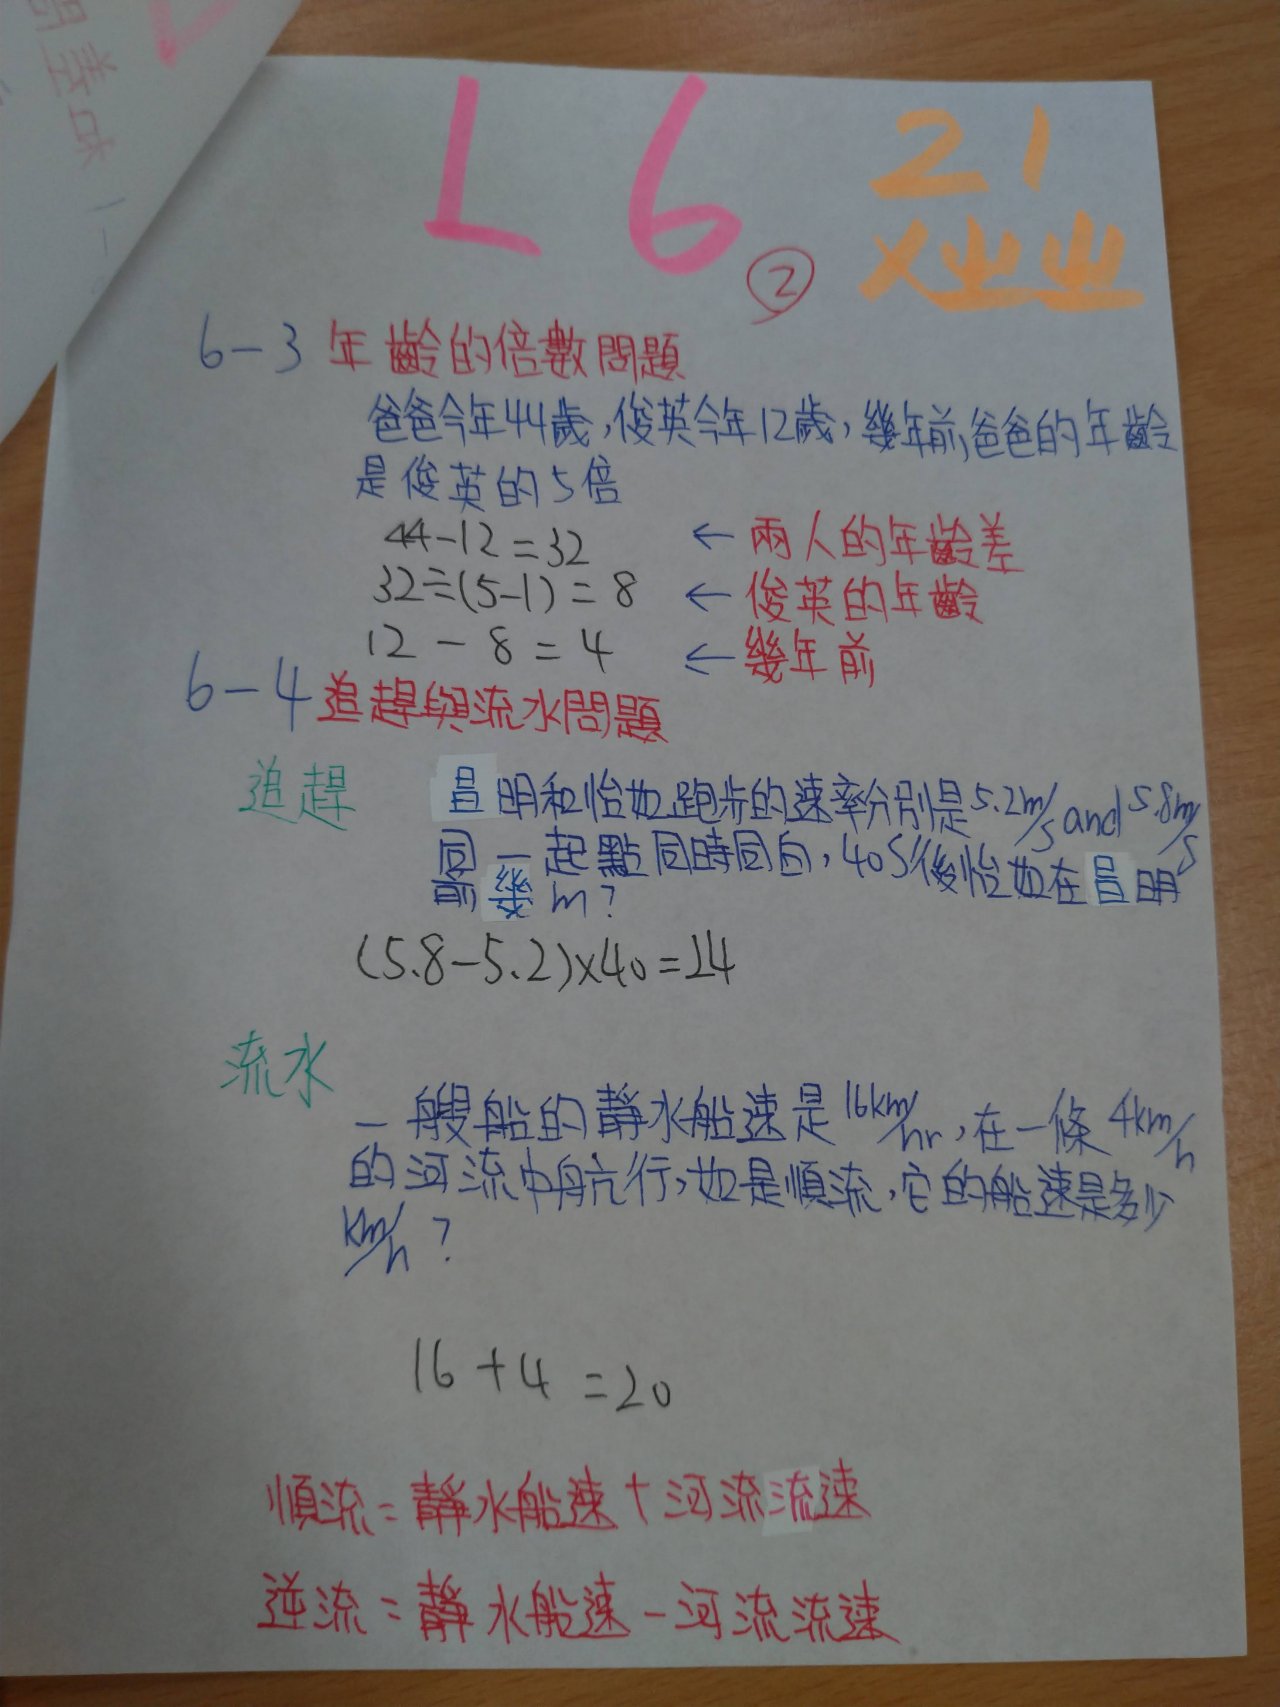 L6
②
21
6-3 年齡的倍數問題
爸爸今年44歲,俊英今年12歲,幾年前,爸爸的年齡
是俊英的5倍
44-12=32 ← 兩人的年齡差
32÷(5-1)=8 ← 俊英的年齡
12-8=4 ← 幾年前
6-4 追趕與流水問題
追趕 昌明和怡如跑步的速率分別是5.2m/s and 5.8m/s
同一起點同時同向,40S後怡如在昌明
前幾m?
(5.8-5.2)×40=24
流水
一艘船的靜水船速是16km/hr,在一條4km/h
的河流中航行,如是順流,它的船速是多少
km/h?
16+4=20
順流=靜水船速+河流流速
逆流=靜水船速-河流流速